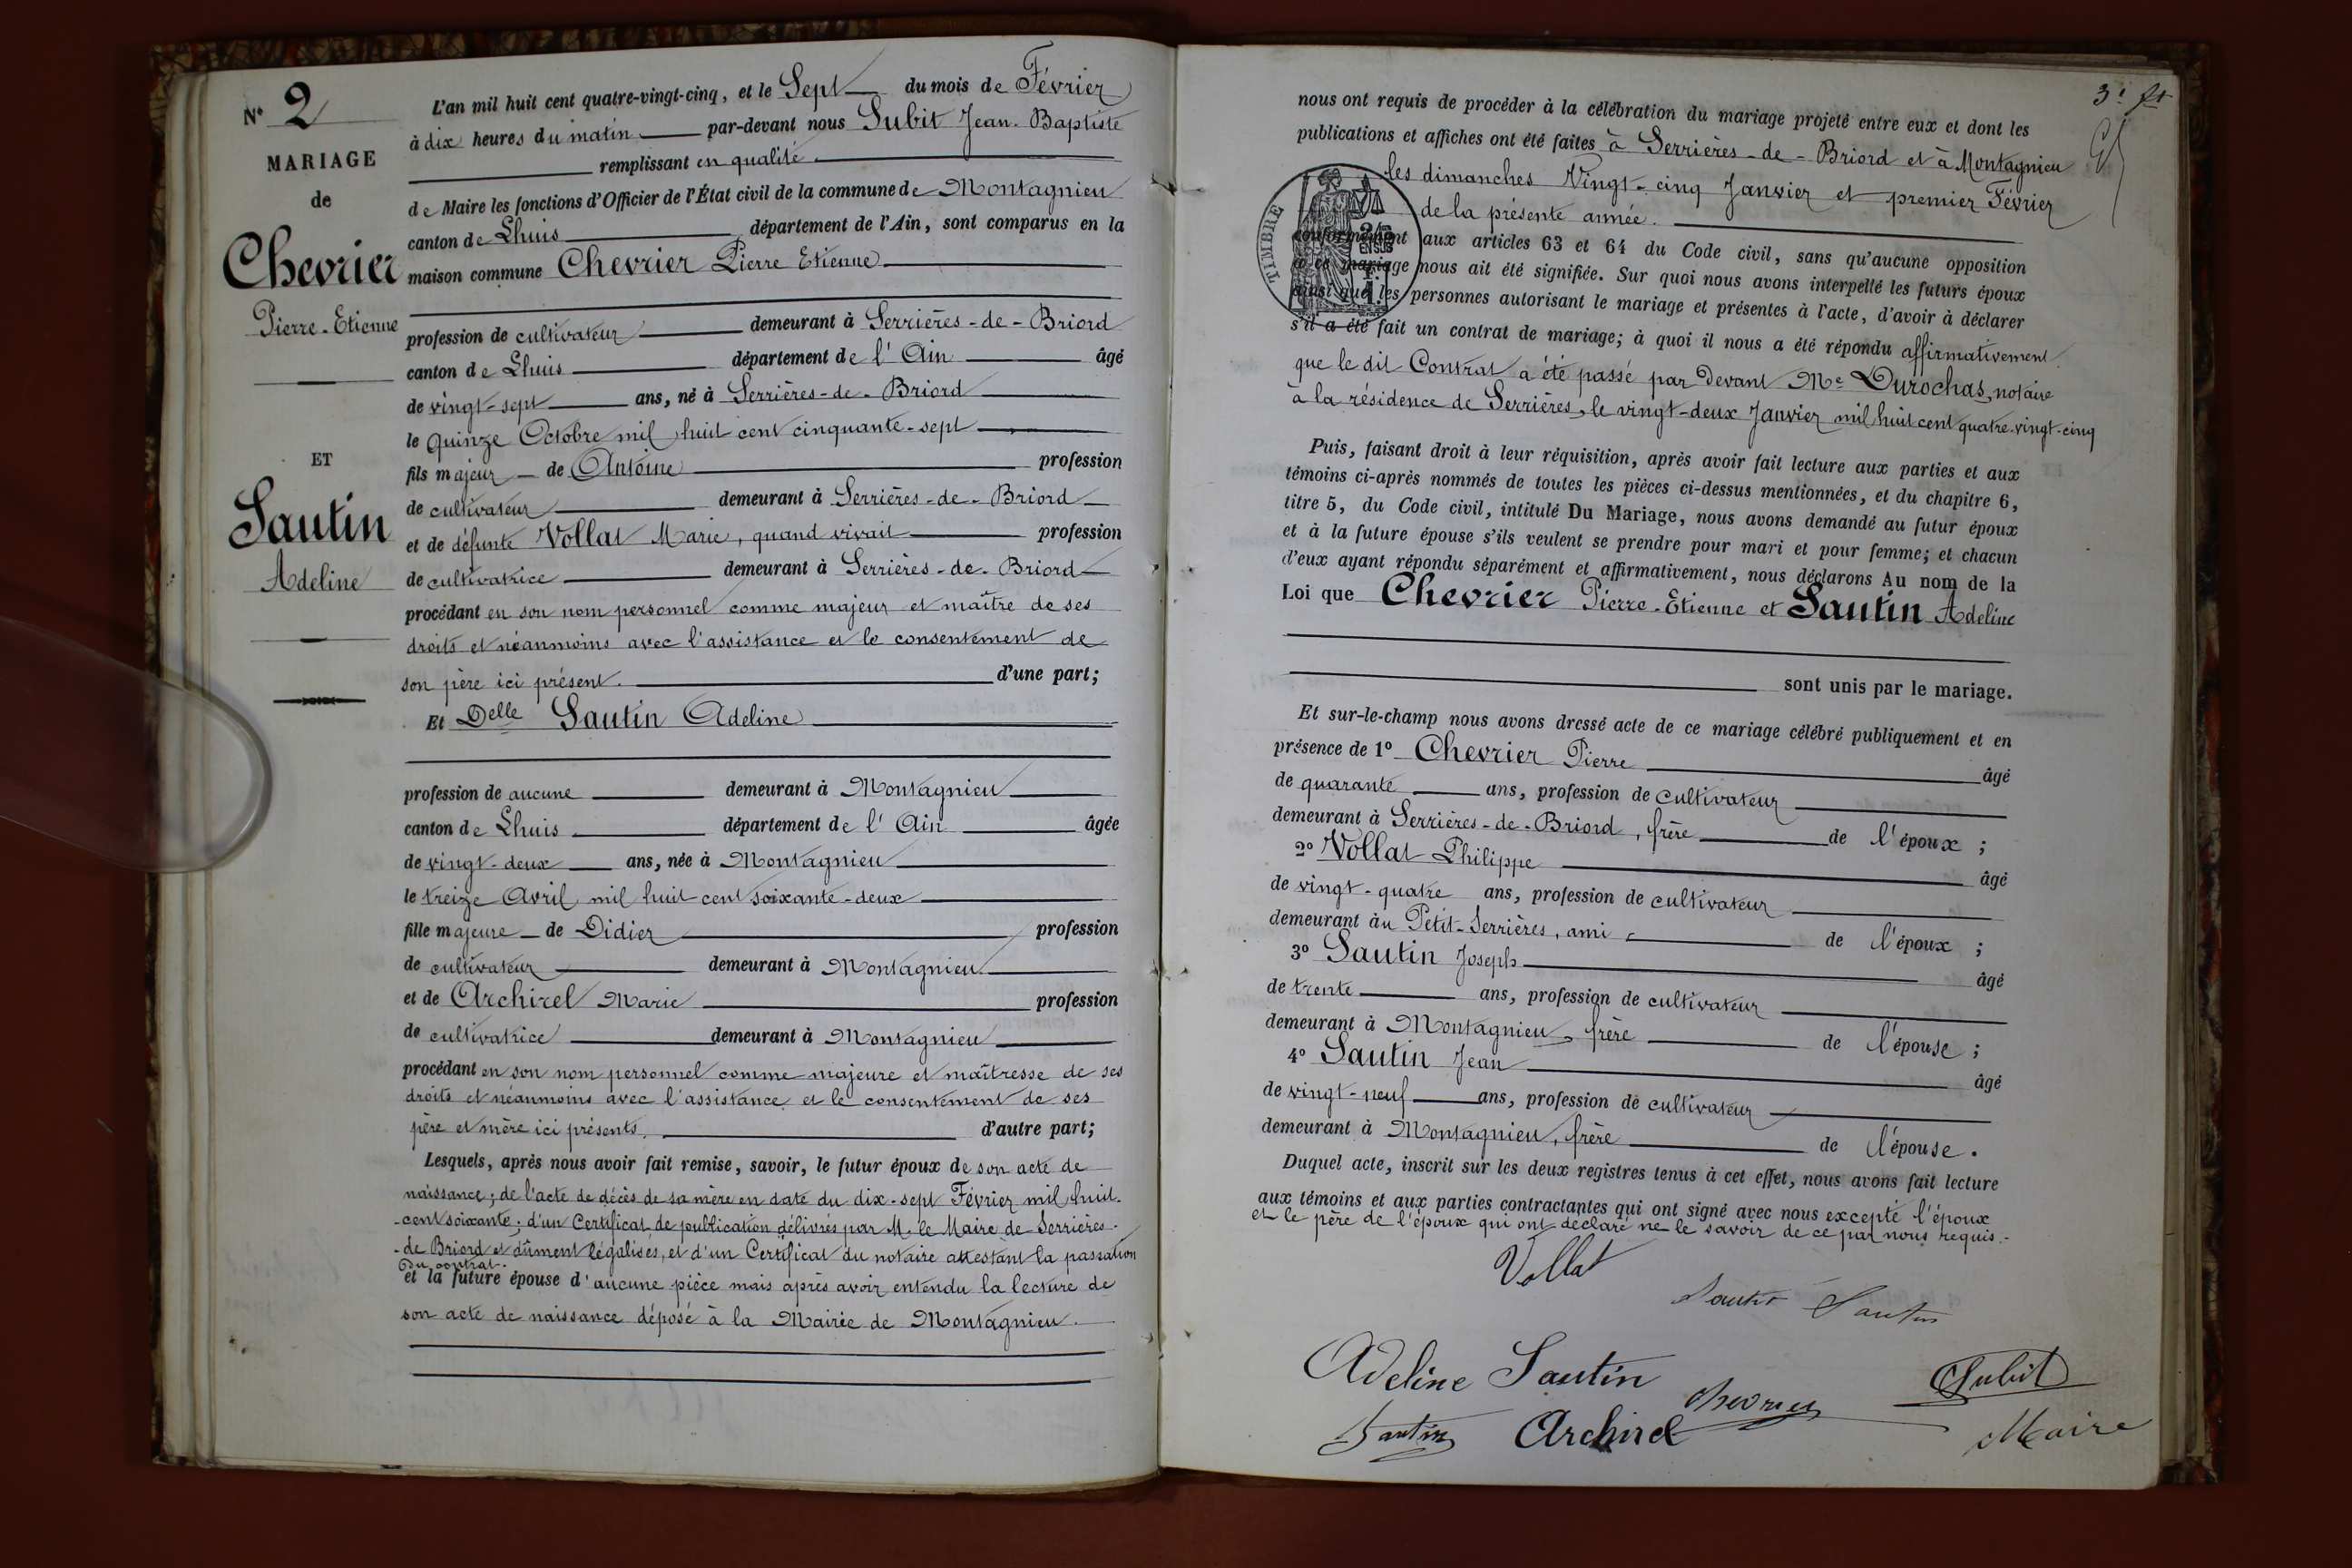 N° 2
MARIAGE
de
Chevrier
Pierre-Etienne
ET
Sautin
Adeline
L'an mil huit cent quatre-vingt-cinq, et le Sept du mois de Février
à dix heures du matin par-devant nous Subit Jean-Baptiste
remplissant en qualité
de Maire les fonctions d'Officier de l'État civil de la commune de Montagnieu
canton de Lhuis département de l'Ain, sont comparus en la
maison commune Chevrier Pierre Etienne
profession de cultivateur demeurant à Serrières-de-Briord
canton de Lhuis département de l'Ain âgé
de vingt-sept ans, né à Serrières-de-Briord
le quinze Octobre mil huit cent cinquante-sept
fils majeur de Antoine profession
de cultivateur demeurant à Serrières-de-Briord
et de défunte Vollat Marie, quand vivait profession
de cultivatrice demeurant à Serrières-de-Briord
procédant en son nom personnel comme majeur et maître de ses
droits et néanmoins avec l'assistance et le consentement de
son père ici présent. d'une part;
Et Delle Sautin Adeline
profession de aucune demeurant à Montagnieu
canton de Lhuis département de l'Ain âgée
de vingt-deux ans, née à Montagnieu
le treize Avril mil huit cent soixante-deux
fille majeure de Didier profession
de cultivateur demeurant à Montagnieu
et de Archirel Marie profession
de cultivatrice demeurant à Montagnieu
procédant en son nom personnel comme majeure et maîtresse de ses
droits et néanmoins avec l'assistance et le consentement de ses
père et mère ici présents. d'autre part;
Lesquels, après nous avoir fait remise, savoir, le futur époux de son acte de
naissance; de l'acte de décès de sa mère en date du dix-sept Février mil huit-
-cent soixante; d'un Certificat de publication délivrés par M. le Maire de Serrières-
-de Briord et dûment légalisés, et d'un Certificat du notaire attestant la passation
du contrat.
et la future épouse d'aucune pièce mais après avoir entendu la lecture de
son acte de naissance déposé à la Mairie de Montagnieu.
3e ft
nous ont requis de procéder à la célébration du mariage projeté entre eux et dont les
publications et affiches ont été faites à Serrières-de-Briord et à Montagnieu
les dimanches Vingt-cinq Janvier et premier Février
de la présente année.
TIMBRE
conformément aux articles 63 et 64 du Code civil, sans qu'aucune opposition
à ce mariage nous ait été signifiée. Sur quoi nous avons interpellé les futurs époux
ainsi que les personnes autorisant le mariage et présentes à l'acte, d'avoir à déclarer
s'il a été fait un contrat de mariage; à quoi il nous a été répondu affirmativement
que le dit Contrat a été passé par Devant Me Durochas, notaire
à la résidence de Serrières, le vingt-deux Janvier mil huit cent quatre-vingt-cinq
Puis, faisant droit à leur réquisition, après avoir fait lecture aux parties et aux
témoins ci-après nommés de toutes les pièces ci-dessus mentionnées, et du chapitre 6,
titre 5, du Code civil, intitulé Du Mariage, nous avons demandé au futur époux
et à la future épouse s'ils veulent se prendre pour mari et pour femme; et chacun
d'eux ayant répondu séparément et affirmativement, nous déclarons Au nom de la
Loi que Chevrier Pierre-Etienne et Sautin Adeline
sont unis par le mariage.
Et sur-le-champ nous avons dressé acte de ce mariage célébré publiquement et en
présence de 1° Chevrier Pierre âgé
de quarante ans, profession de cultivateur
demeurant à Serrières-de-Briord, frère de l'époux;
2° Vollat Philippe âgé
de vingt-quatre ans, profession de cultivateur
demeurant au Petit-Serrières, ami de l'époux;
3° Sautin Joseph âgé
de trente ans, profession de cultivateur
demeurant à Montagnieu, frère de l'épouse;
4° Sautin Jean âgé
de vingt-neuf ans, profession de cultivateur
demeurant à Montagnieu, frère de l'épouse.
Duquel acte, inscrit sur les deux registres tenus à cet effet, nous avons fait lecture
aux témoins et aux parties contractantes qui ont signé avec nous excepté l'époux
et le père de l'époux qui ont déclaré ne le savoir de ce par nous requis.-
Vollat
Sautin Sautin
Adeline Sautin
Chevrier
Subit
Sautin Archirel
Maire